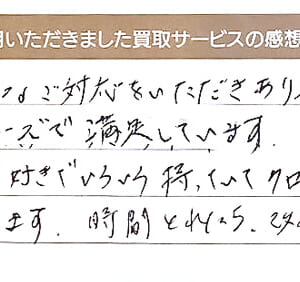 用いただきました買取サービスの感想
ご対応をいただきあり
ーズで満足しています.
好きでいろいろ持っていてクロ
ます. 時間とれたら、